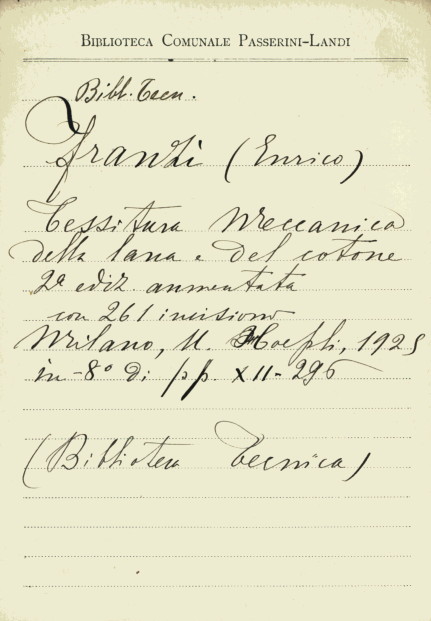 BIBLIOTECA COMUNALE PASSERINI-LANDI
Bibl. Tecn.
Franzi (Enrico)
Tessitura Meccanica
della lana e del cotone
2ª ediz. aumentata
con 261 incisioni
Milano, U. Hoepli, 1925
in-8º di pp. XII-296
(Biblioteca Tecnica)